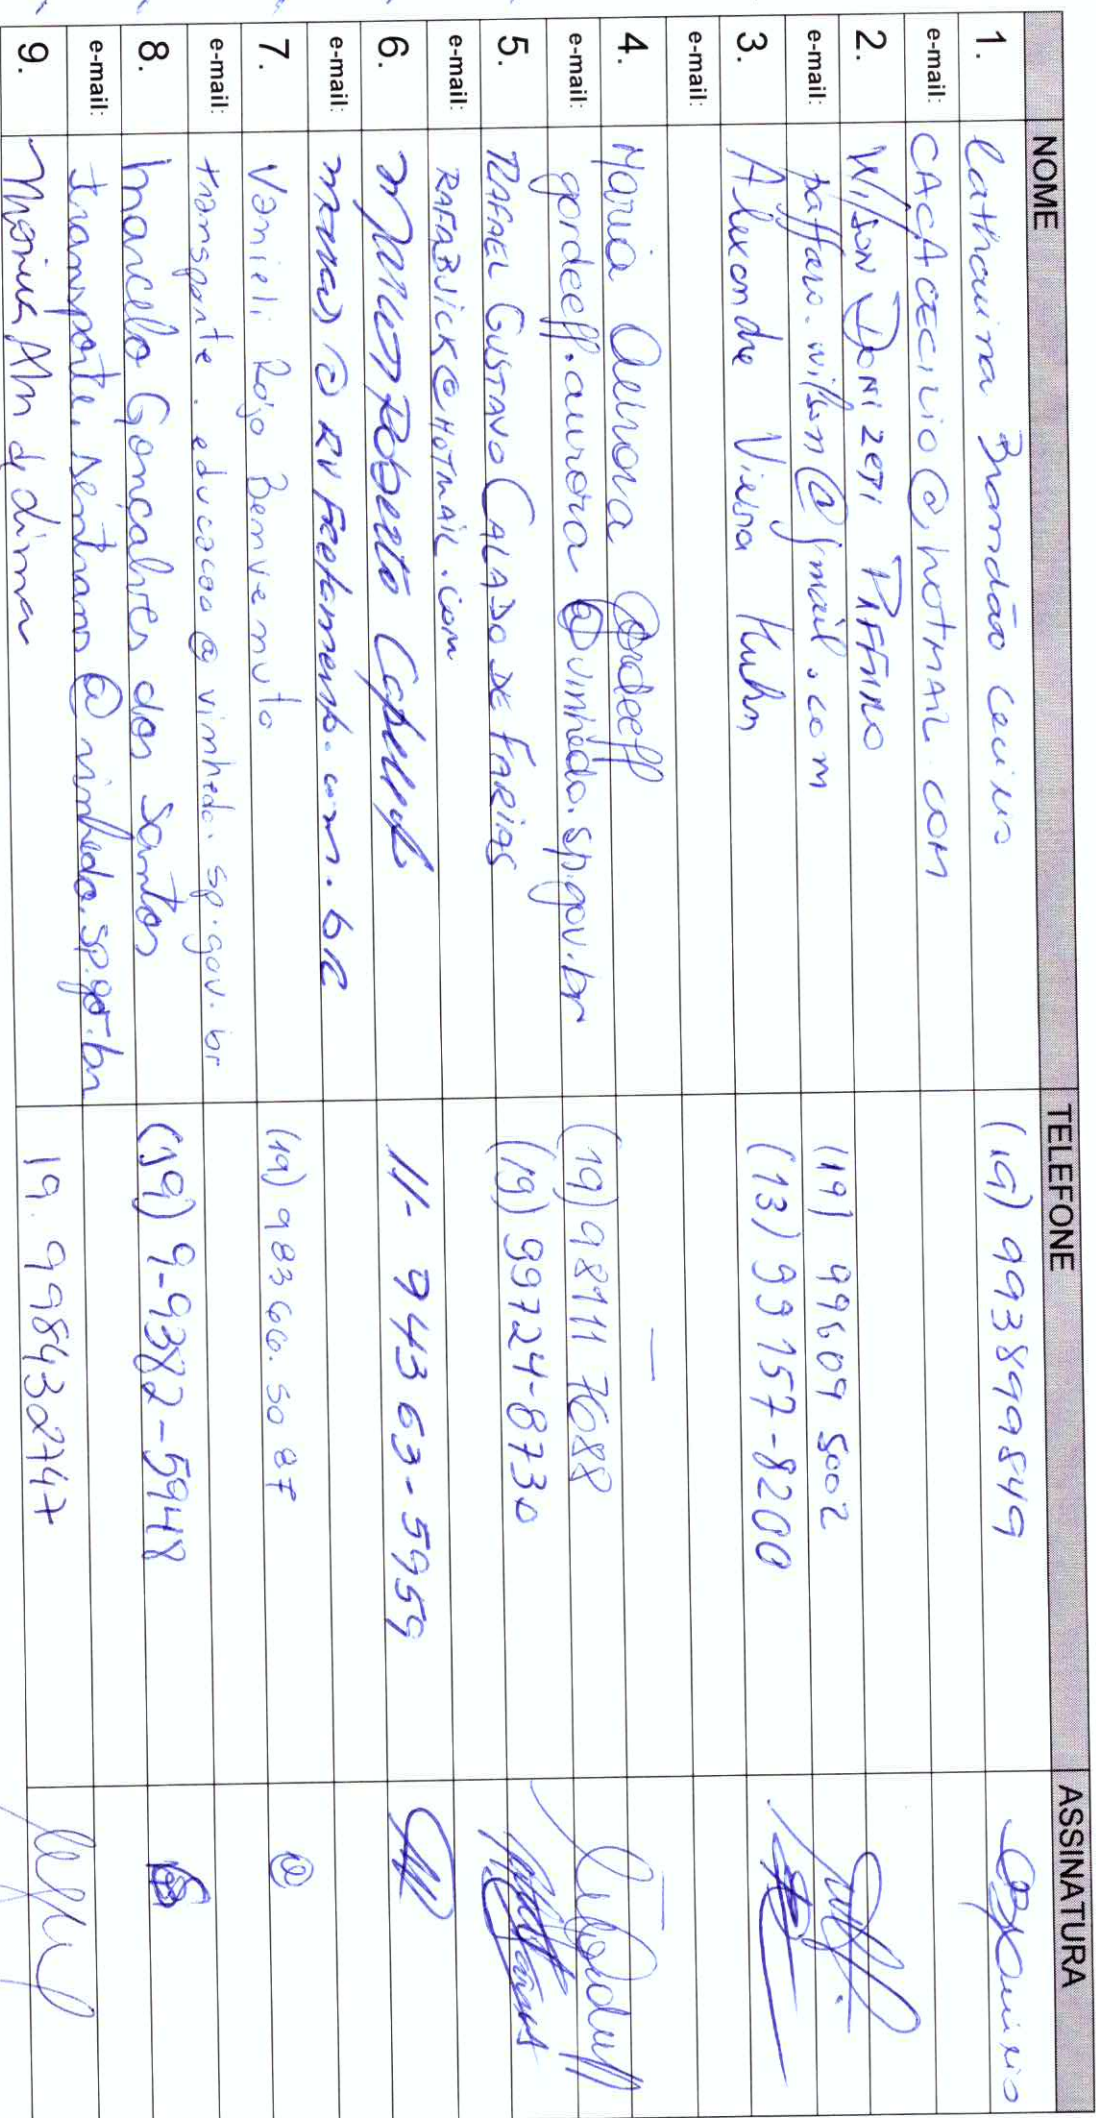 NOME TELEFONE ASSINATURA
1. Catharina Brandão Cecilio (19) 993899849
e-mail: CACACECILIO@HOTMAIL.COM
2. Wilson Donizeti Paffaro (19) 99609 5002
e-mail: paffaro.wilson@gmail.com
3. Alexandre Vieira Kuhn (13) 99157-8200
e-mail:
4. Maria Aurora Gordeeff —
e-mail: gordeeff.aurora@vinhedo.sp.gov.br (19) 98111 7688
5. RAFAEL GUSTAVO CALADO DE FARIAS (19) 99724-8730
e-mail: RAFABJICK@HOTMAIL.COM
6. Roberto 11- 94363-5959
e-mail: @RVFretamento.com.br
7. Vanieli Rojo Benvenuto (19) 98366.5087
e-mail: transporte.educacao@vinhedo.sp.gov.br
8. Marcelo Gonçalves dos Santos (19) 9-9382-5948
e-mail: transporte.sentrans@vinhedo.sp.gov.br
9. de Lima 19. 998432747